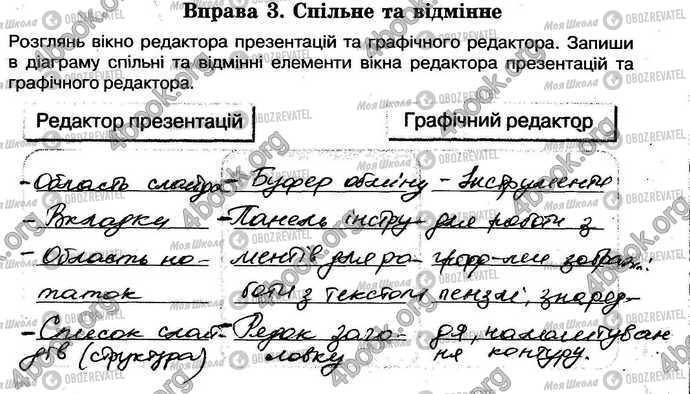 Вправа 3. Спільне та відмінне
Розглянь вікно редактора презентацій та графічного редактора. Запиши
в діаграму спільні та відмінні елементи вікна редактора презентацій та
графічного редактора.
Редактор презентацій
Графічний редактор
- Область слайда
- Вкладки
- Область но-
таток
- Список слай-
дів (структура)
- Буфер обміну
- Панель інстру-
ментів для ро-
боти з текстом
- Рядок заго-
ловку
- Інструменти
для роботи з
граф-ним зображ.:
пензлі, знаряд-
дя, налаштуван
ня контуру.